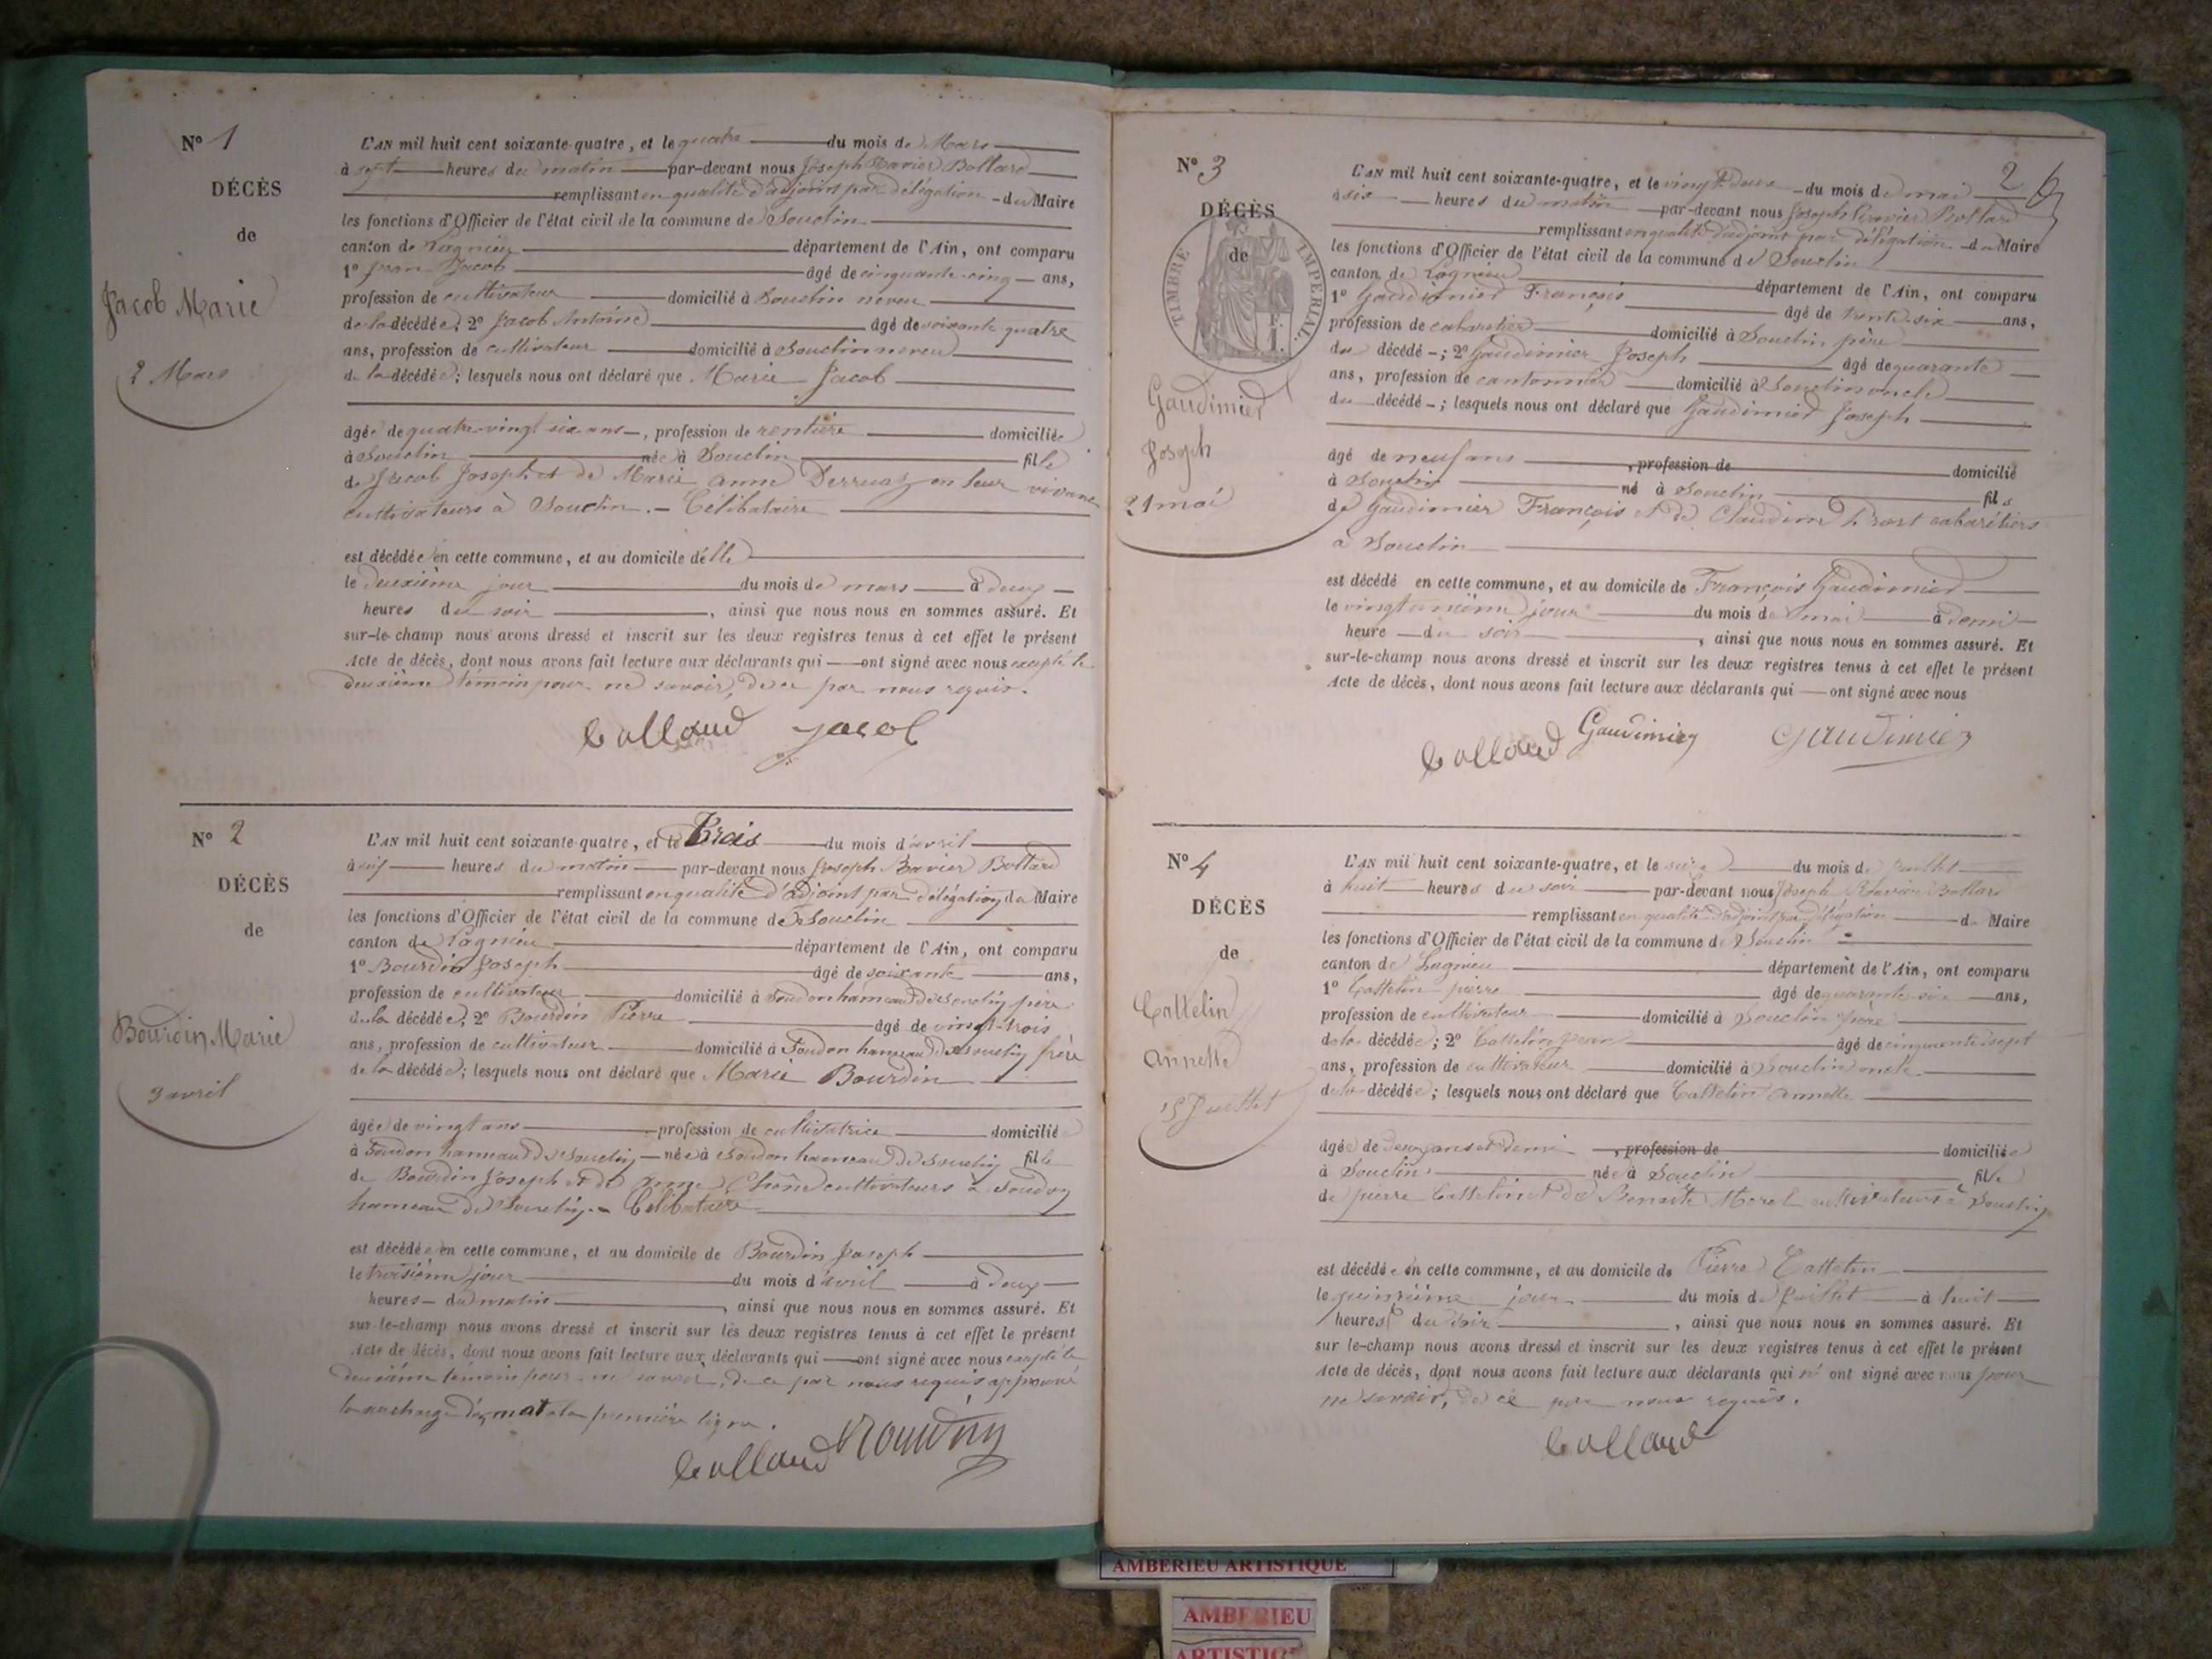 N° 1
DÉCÈS
de
Jacob Marie
2 Mars
L'AN mil huit cent soixante-quatre, et le quatre du mois de Mars
à sept heures du matin par-devant nous Joseph Xavier Bollard
remplissant en qualité d'adjoint par délégation du Maire
les fonctions d'Officier de l'état civil de la commune de Souclin
canton de Lagnieu département de l'Ain, ont comparu
1° Jean Jacob âgé de cinquante-cinq ans,
profession de cultivateur domicilié à Souclin neveu
de la décédée; 2° Jacob Antoine âgé de soixante quatre
ans, profession de cultivateur domicilié à Souclin neveu
de la décédée; lesquels nous ont déclaré que Marie Jacob
âgée de quatre-vingt six ans, profession de rentière domiciliée
à Souclin née à Souclin fille
de Jacob Joseph et de Marie Anne Derruaz en leur vivant
cultivateurs à Souclin. - Célibataire
est décédée en cette commune, et au domicile d'elle
le deuxième jour du mois de mars à deux
heures du soir, ainsi que nous nous en sommes assuré. Et
sur-le-champ nous avons dressé et inscrit sur les deux registres tenus à cet effet le présent
Acte de décès, dont nous avons fait lecture aux déclarants qui ont signé avec nous excepté le
deuxième témoin pour ne savoir, de ce par nous requis.
Bollard Jacob
N° 2
DÉCÈS
de
Bourdin Marie
3 avril
L'AN mil huit cent soixante-quatre, et le Trois du mois d'avril
à six heures du matin par-devant nous Joseph Xavier Bollard
remplissant en qualité d'adjoint par délégation du Maire
les fonctions d'Officier de l'état civil de la commune de Souclin
canton de Lagnieu département de l'Ain, ont comparu
1° Bourdin Joseph âgé de soixante ans,
profession de cultivateur domicilié à Soudon hameau de Souclin père
de la décédée; 2° Bourdin Pierre âgé de vingt-trois
ans, profession de cultivateur domicilié à Soudon hameau de Souclin frère
de la décédée; lesquels nous ont déclaré que Marie Bourdin
âgée de vingt ans profession de cultivatrice domiciliée
à Soudon hameau de Souclin née à Soudon hameau de Souclin fille
de Bourdin Joseph et de Anne cultivateurs à Soudon
hameau de Souclin. - Célibataire
est décédée en cette commune, et au domicile de Bourdin Joseph
le troisième jour du mois d'avril à deux
heures du matin, ainsi que nous nous en sommes assuré. Et
sur-le-champ nous avons dressé et inscrit sur les deux registres tenus à cet effet le présent
Acte de décès, dont nous avons fait lecture aux déclarants qui ont signé avec nous excepté le
deuxième témoin pour ne savoir, de ce par nous requis approuvé
la surcharge du mot à la première ligne.
Bollard Bourdin
N° 3
DÉCÈS
de
TIMBRE IMPÉRIAL
Gaudimier
Joseph
21 mai
2
L'AN mil huit cent soixante-quatre, et le vingt deux du mois de mai
à six heures du matin par-devant nous Joseph Xavier Bollard
remplissant en qualité d'adjoint par délégation du Maire
les fonctions d'Officier de l'état civil de la commune de Souclin
canton de Lagnieu département de l'Ain, ont comparu
1° Gaudimier François âgé de trente-six ans,
profession de cabaretier domicilié à Souclin père
du décédé; 2° Gaudimier Joseph âgé de quarante
ans, profession de cantonnier domicilié à Souclin oncle
du décédé; lesquels nous ont déclaré que Gaudimier Joseph
âgé de neuf ans, profession de domicilié
à Souclin né à Souclin fils
de Gaudimier François et de Claudine cabarétiers
à Souclin
est décédé en cette commune, et au domicile de François Gaudimier
le vingt unième jour du mois de mai à demi
heure du soir, ainsi que nous nous en sommes assuré. Et
sur-le-champ nous avons dressé et inscrit sur les deux registres tenus à cet effet le présent
Acte de décès, dont nous avons fait lecture aux déclarants qui ont signé avec nous
Bollard Gaudimier Gaudimier
N° 4
DÉCÈS
de
Cattelin
Annette
15 Juillet
L'AN mil huit cent soixante-quatre, et le seize du mois de Juillet
à huit heures du soir par-devant nous Joseph Xavier Bollard
remplissant en qualité d'adjoint par délégation du Maire
les fonctions d'Officier de l'état civil de la commune de Souclin
canton de Lagnieu département de l'Ain, ont comparu
1° Cattelin pierre âgé de quarante-six ans,
profession de cultivateur domicilié à Souclin père
de la décédée; 2° Cattelin Jean âgé de cinquante sept
ans, profession de cultivateur domicilié à Souclin oncle
de la décédée; lesquels nous ont déclaré que Cattelin Annette
âgée de deux ans et demi, profession de domiciliée
à Souclin née à Souclin fille
de pierre Cattelin et de Benoite Morel cultivateurs à Souclin
est décédée en cette commune, et au domicile de Pierre Cattelin
le quinzième jour du mois de Juillet à huit
heures du soir, ainsi que nous nous en sommes assuré. Et
sur le-champ nous avons dressé et inscrit sur les deux registres tenus à cet effet le présent
Acte de décès, dont nous avons fait lecture aux déclarants qui n'ont signé avec nous pour
ne savoir, de ce par nous requis.
Bollard
AMBERIEU ARTISTIQUE
AMBERIEU